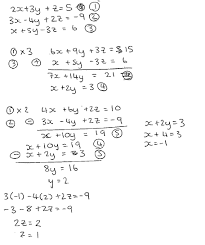 2x+3y+z=5 ①
3x-4y+2z=-9 ②
x+5y-3z=6 ③
①×3 6x+9y+3z=15
③ + x+5y-3z=6
7x+14y=21
x+2y=3 ④
①×2 4x+6y+2z=10
② - 3x-4y+2z=-9
x+10y=19 ⑤
x+10y=19
- x+2y=3
8y=16
y=2
x+2y=3
x+4=3
x=-1
3(-1)-4(2)+2z=-9
-3-8+2z=-9
2z=2
z=1